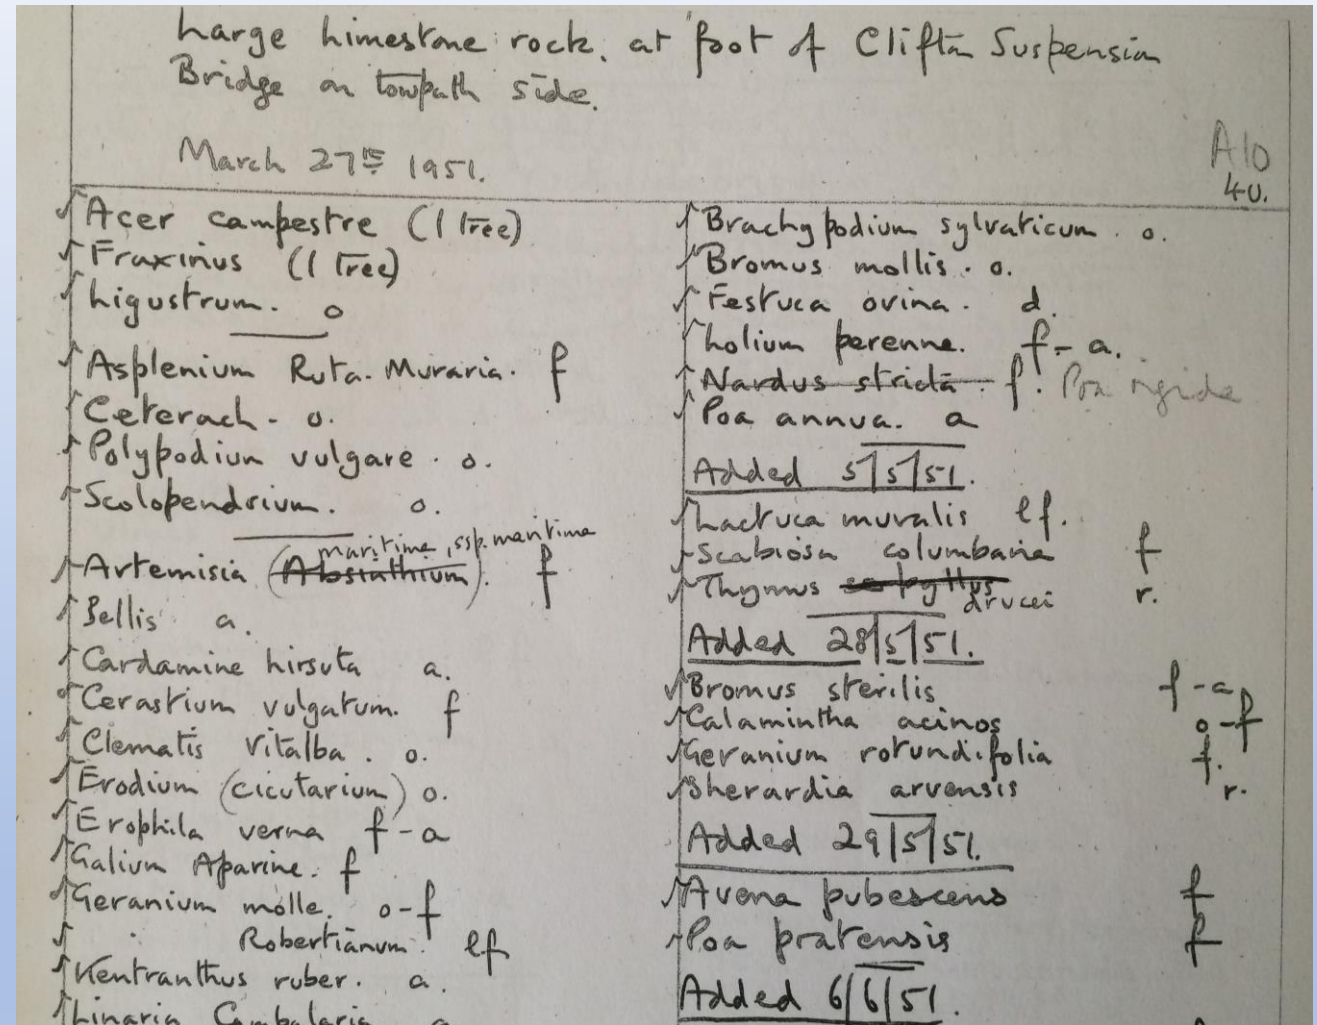 Large Limestone rock. at foot of Clifton Suspension
Bridge on towpath side.
March 27th 1951.
A10
40.
Acer campestre (1 tree)
Fraxinus (1 tree)
Ligustrum. o
Asplenium Ruta-Muraria. f
Ceterach - o.
Polypodium vulgare. o.
Scolopendrium. o.
maritima, ssp. maritima
Artemisia (Absinthium). f
Bellis a.
Cardamine hirsuta a.
Cerastium vulgatum. f
Clematis Vitalba. o.
Erodium (cicutarium) o.
Erophila verna f-a
Galium Aparine. f
Geranium molle. o-f
Robertianum lf
Kentranthus ruber. a.
Linaria Cymbalaria a
Brachypodium sylvaticum. o.
Bromus mollis. o.
Festuca ovina. d.
Lolium perenne. f-a.
Nardus stricta - f. Poa rigida
Poa annua. a
Added 5/5/51.
Lactuca muralis lf.
Scabiosa columbaria f
Thymus serpyllus r.
drucei
Added 28/5/51.
Bromus sterilis f-a
Calamintha acinos o-f
Geranium rotundifolia f.
Sherardia arvensis r.
Added 29/5/51.
Avena pubescens f
Poa pratensis f
Added 6/6/51.